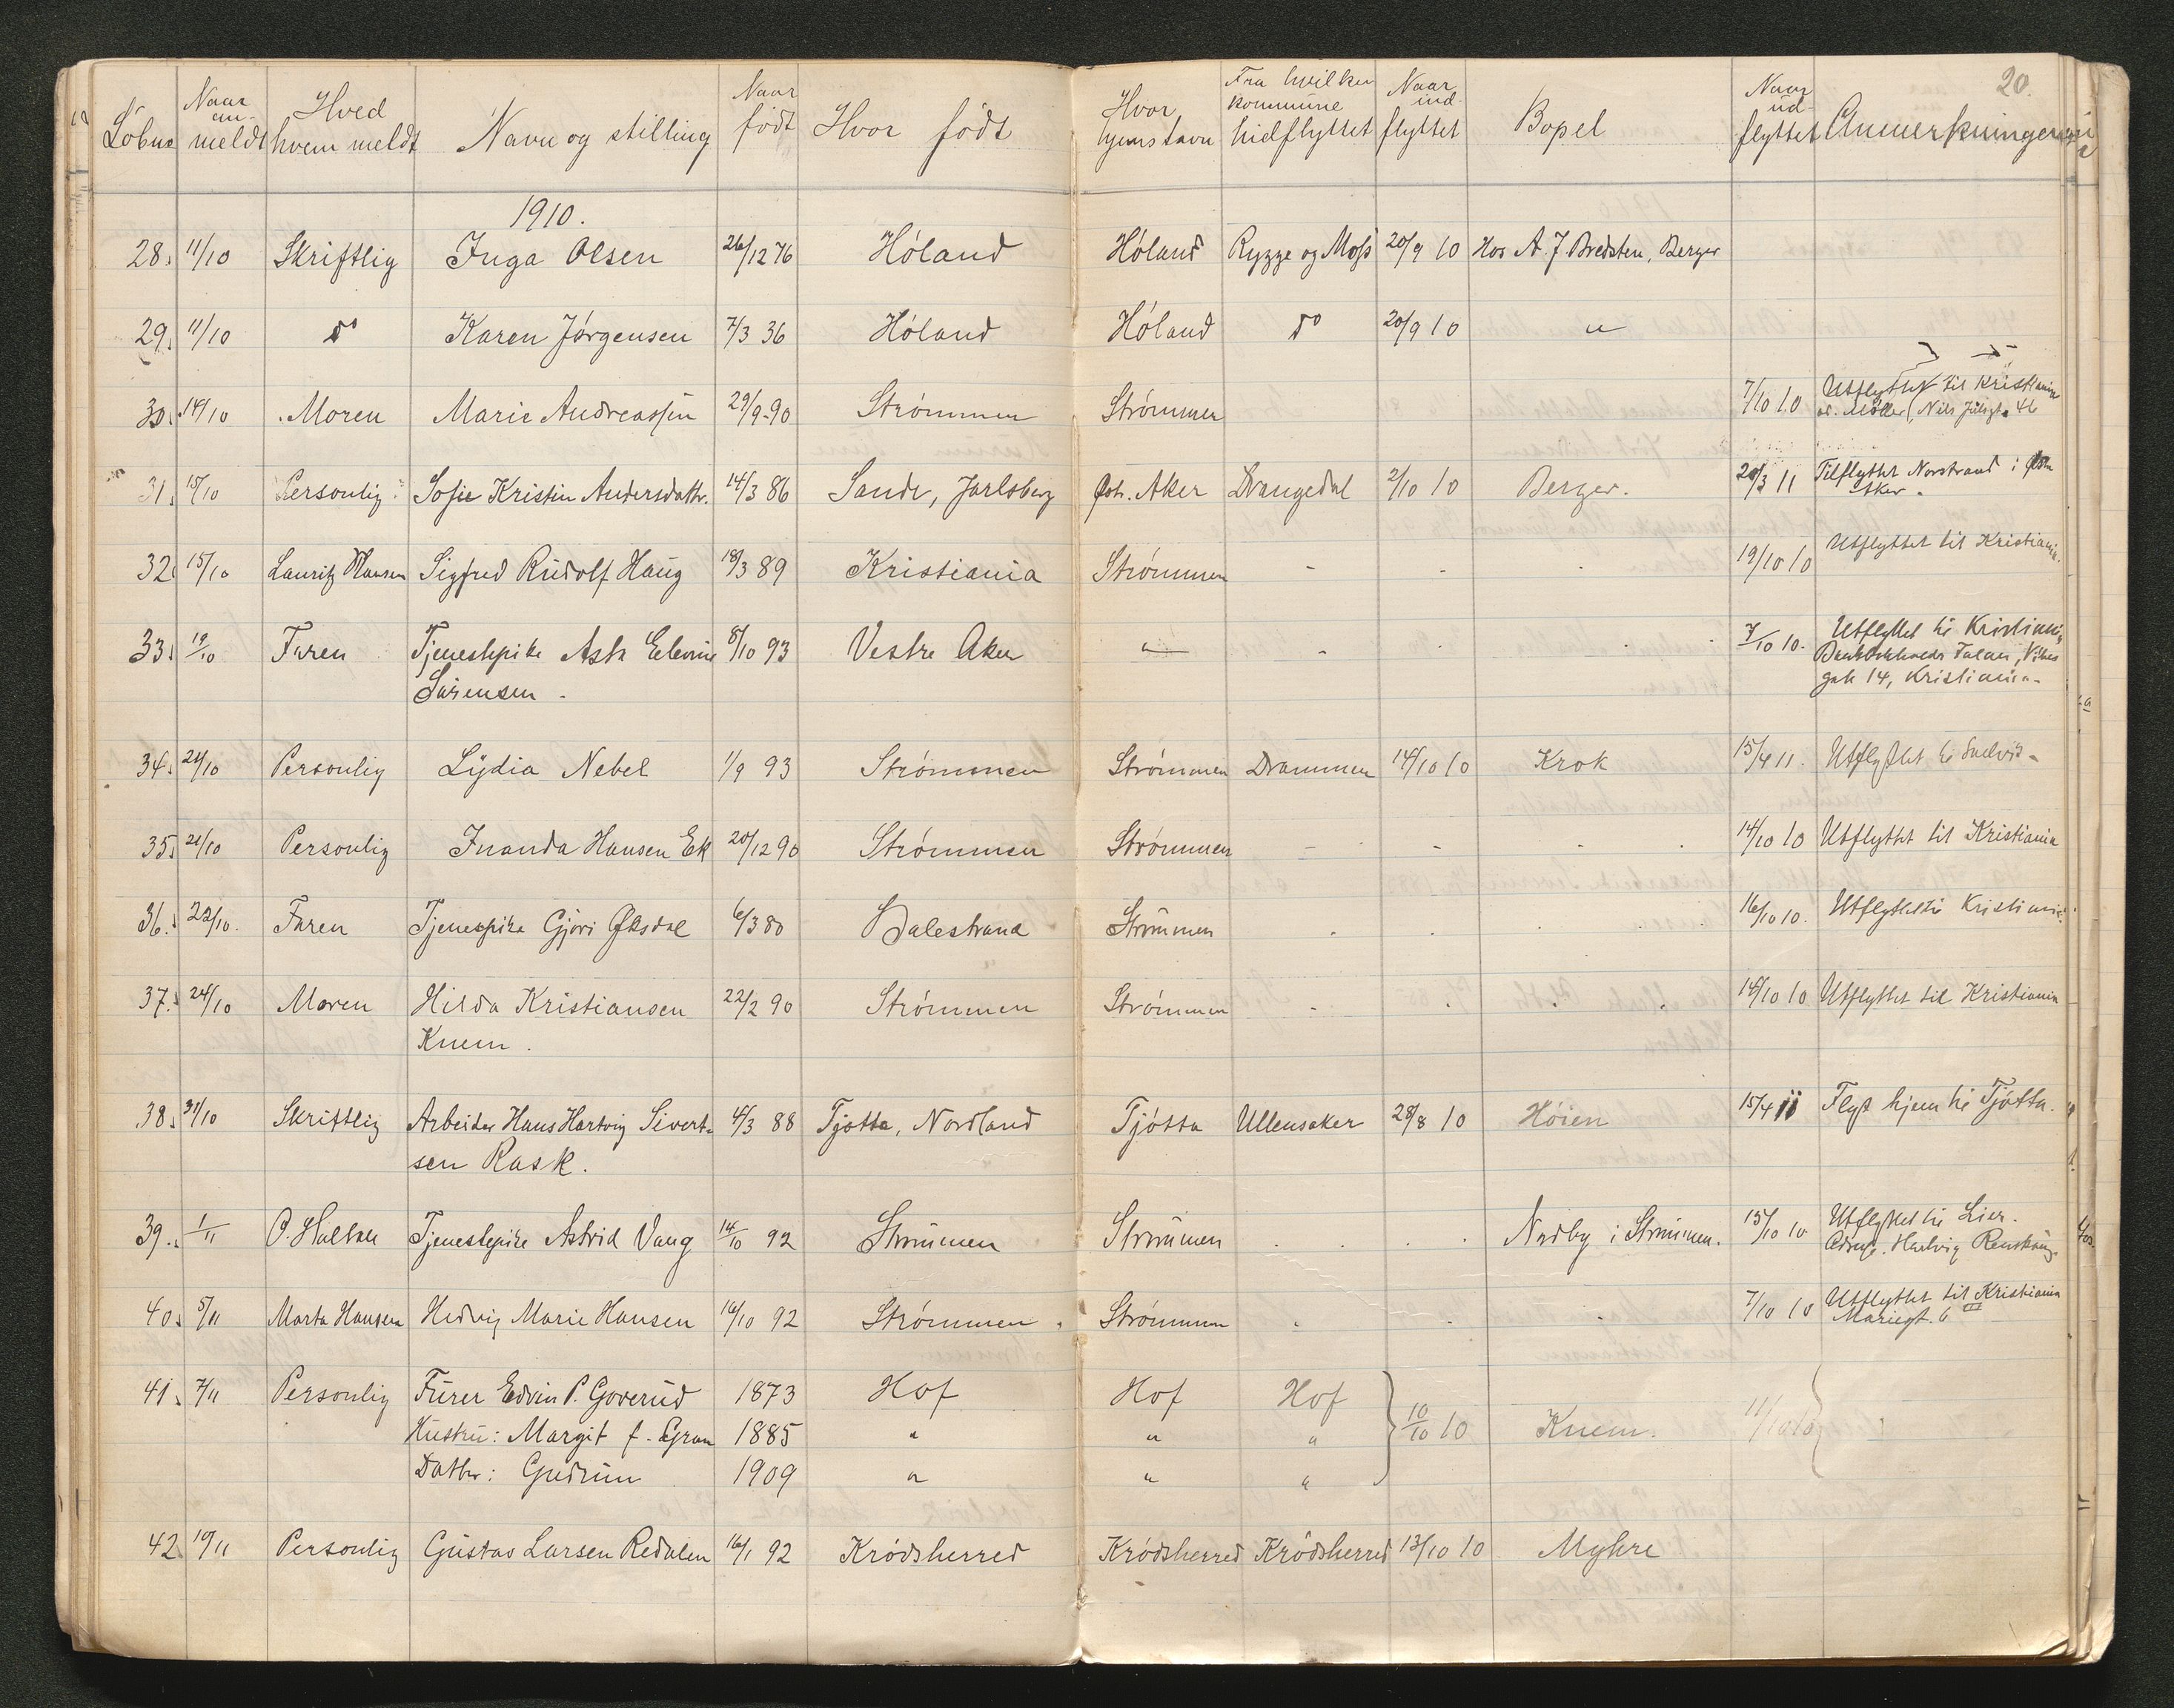 20.
Löbnr Naar an-meldt Hved hvem meldt Navn og stilling Naar födt Hvor födt Hvor hjemstavn Fra hvilken kommune hidflyttet Naar ind-flyttet Bopel Naar ud-flyttet Anmerkninger
1910.
28. 11/10 Skriftlig Inga Olsen 26/12 76 Höland Höland Rygge og Moss 20/9 10 Hos A. J. Bredsten, Berger
29. 11/10 do Karen Jörgensen 7/3 36 Höland Höland do 20/9 10 "
30. 14/10 Moren Marie Andreassen 29/9-90 Strömmen Strömmen 7/10 10 Utflyttet til Kristiania
Möller, Nils Juelsgt. 46
31. 15/10 Personlig Sofie Kristin Andersdattr. 14/3 86 Sande, Jarlsberg Östr. Aker Drangedal 2/10 10 Berger. 20/3 11 Tilflyttet Norstrand i Östre
Aker.
32. 15/10 Lauritz Hansen Sigfred Rudolf Haug 18/3 89 Kristiania Strömmen - - - 19/10 10 Utflyttet til Kristiania.
33. 19/10 Faren Tjenestepike Asta Elevine 8/10 93 Vestre Aker " - - - 7/10 10. Utflyttet til Kristiania,
Sørensen. Vibes
gate 14, Kristiania.
34. 21/10 Personlig Lydia Nebel 1/9 93 Strömmen Strömmen Drammen 14/10 10 Krok 15/4 11. Utflyttet til Svelvik.
35. 21/10 Personlig Inanda Hansen Ek 20/12 90 Strömmen Strömmen - - - 14/10 10 Utflyttet til Kristiania
36. 22/10. Faren Tjenespike Gjöri Øksdal 6/3 80 Balestrand Strömmen 16/10 10. Utflyttet til Kristiania.
37. 24/10 Moren Hilda Kristiansen 22/2 90 Strömmen Strömmen - 14/10 10 Utflyttet til Kristiania
Knem.
38. 31/10 Skriftlig Arbeider Hans Hartvig Sivert- 4/3 88 Tjøtta, Nordland Tjötta Ullensaker 28/8 10 Höien 15/4 11 Flyt hjem til Tjøtta.
sen Rask.
39. 1/11 O. Holtan Tjenestepike Astrid Vang 14/10 92 Strömmen Strömmen Nordby i Strömmen. 15/10 10 Utflyttet til Lier.
Adresse. Hartvig
40. 5/11 Marta Hansen Hedvig Marie Hansen 16/10 92 Strömmen. Strömmen 7/10 10 Utflyttet til Kristiania
Mariegt. 6 III
41. 7/11 Personlig Furer Edvin P. Goverud 1873 Hof Hof Hof
Hustru: Margit f. Gran 1885 " " " 10/10 10 Knem. 11/10 10
Datter: Gudrun 1909 " " "
42. 10/11 Personlig Gustav Larsen Redalen 16/1 92 Krödsherred Krödsherred Krödsherred 13/10 10 Myhre